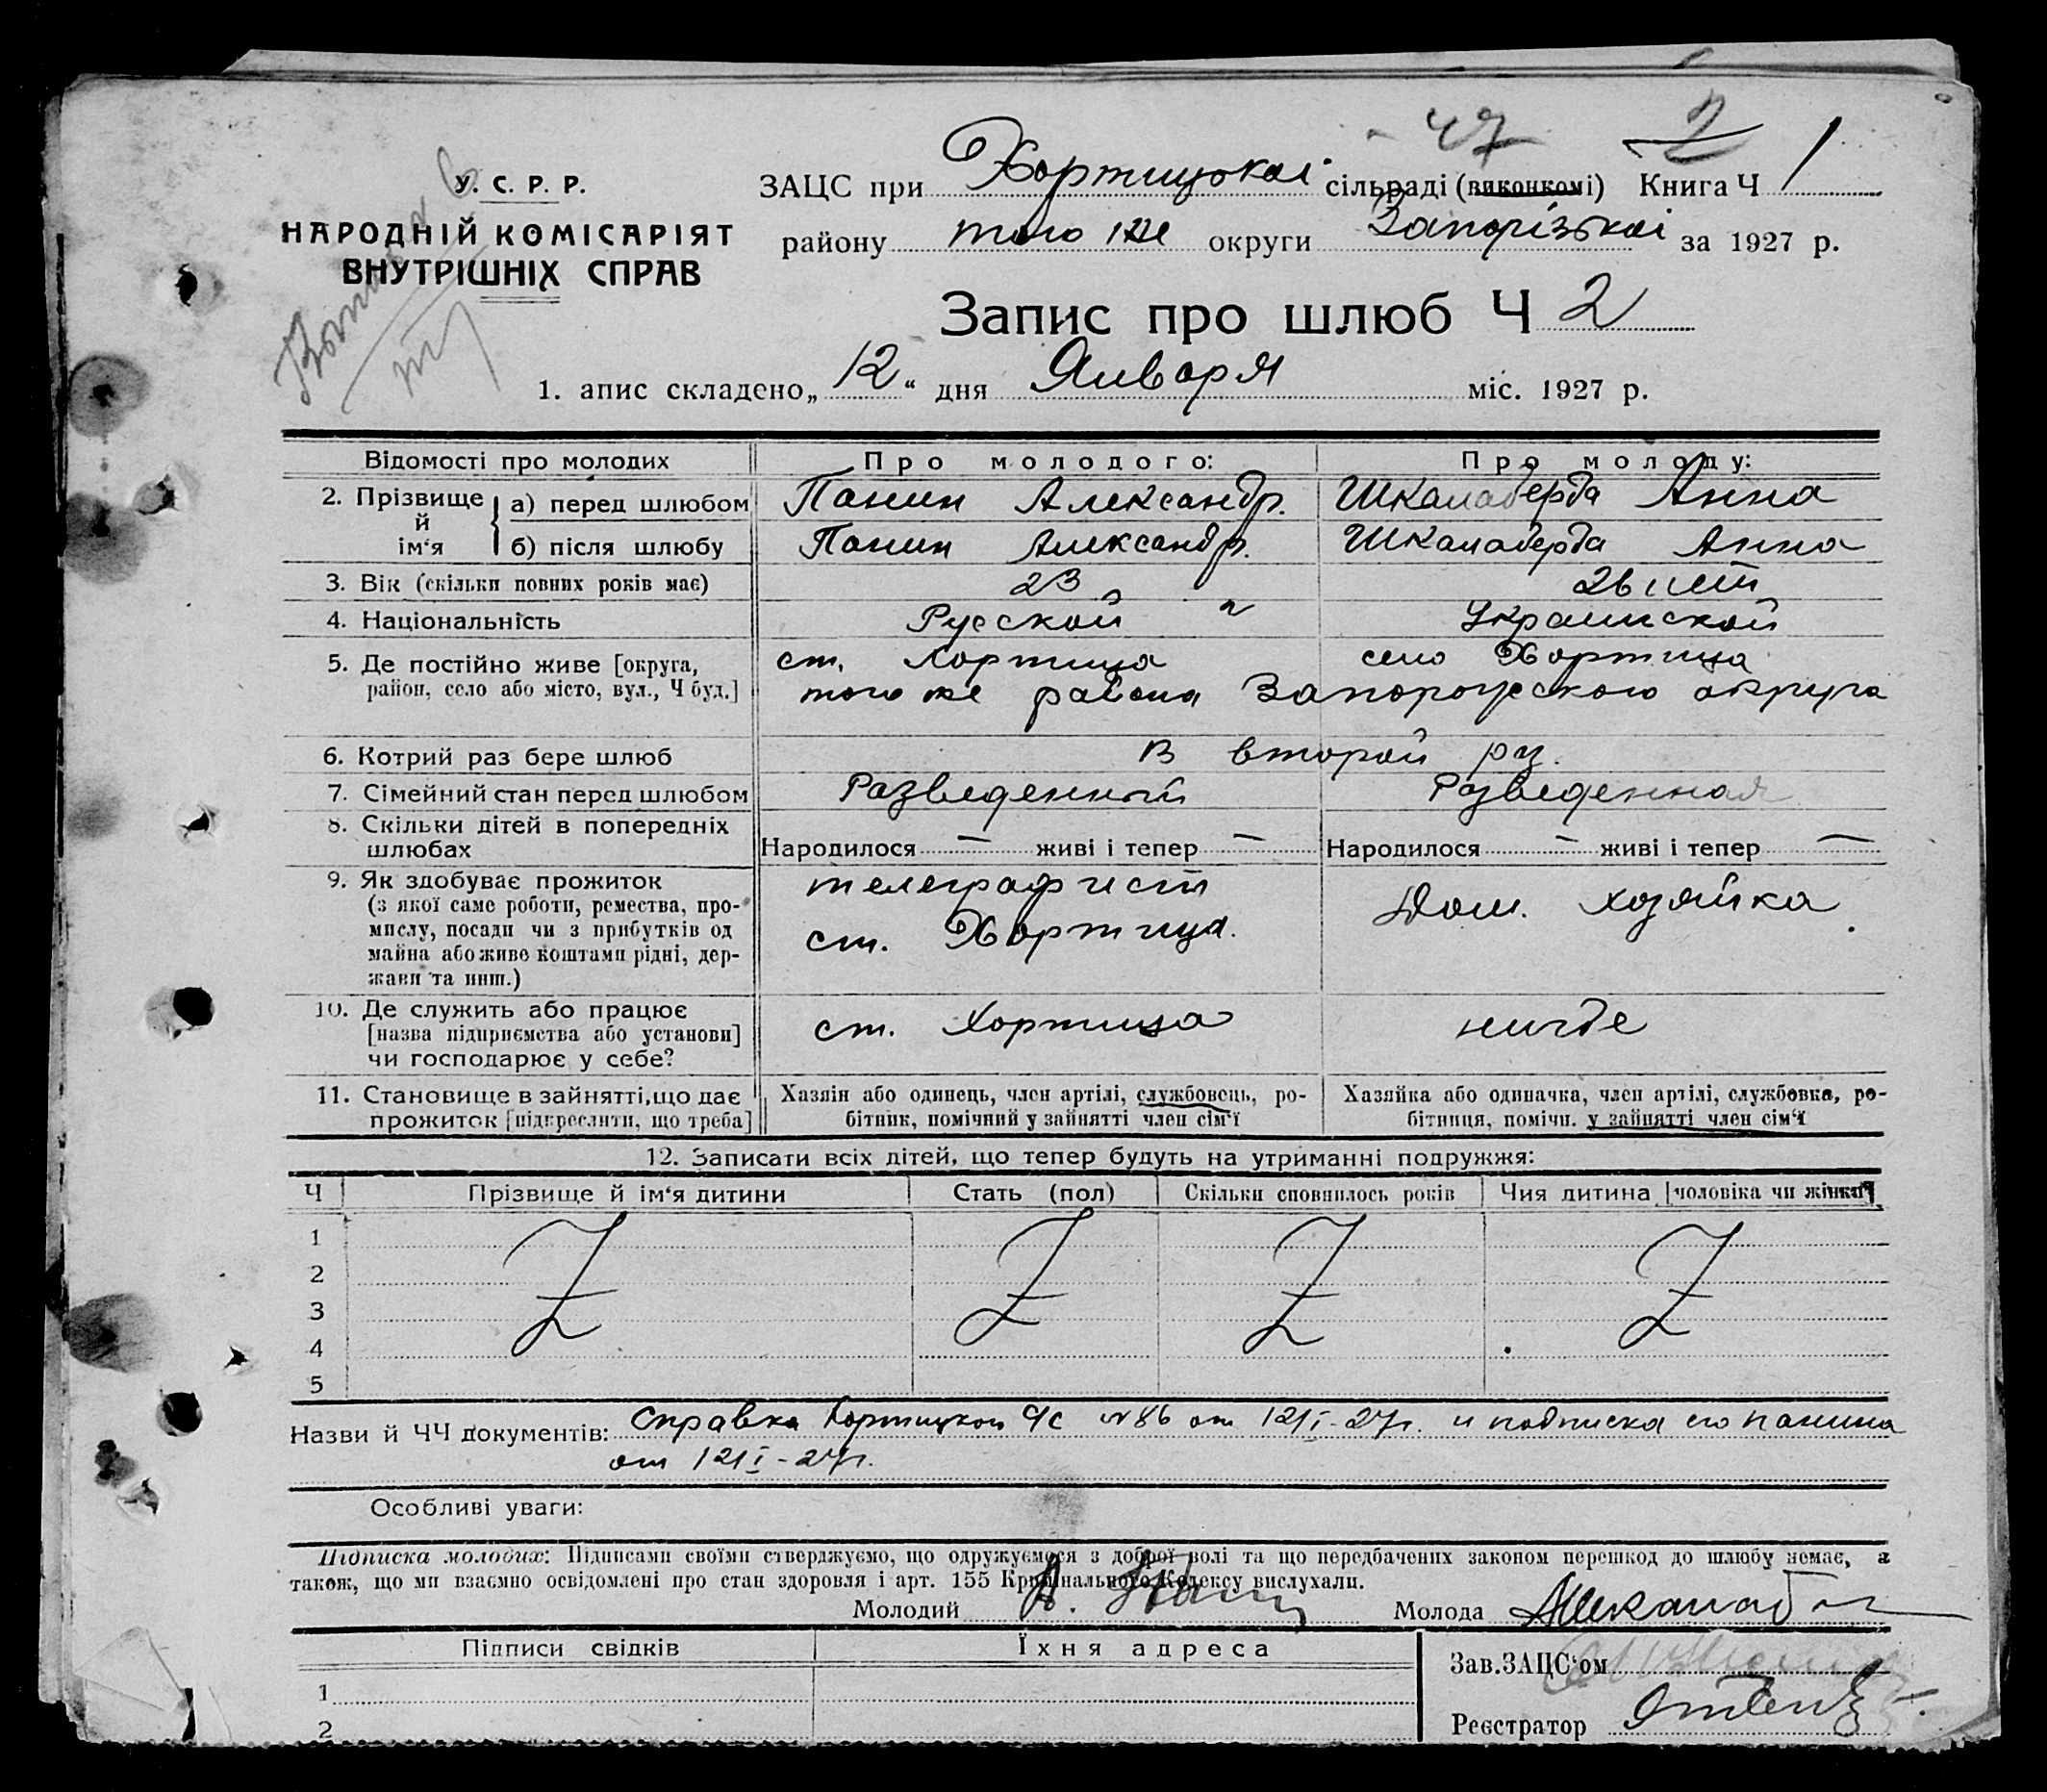 47 2
У. С. Р. Р.
НАРОДНІЙ КОМІСАРІЯТ
ВНУТРІШНІХ СПРАВ
ЗАЦС при Хортицької сільраді (виконкомі) Книга Ч 1
району того же округи Запорізької за 1927 р.
Запис про шлюб Ч 2
1. апис складено „12“ дня Января міс. 1927 р.
Відомості про молодих Про молодого: Про молоду:
2. Прізвище й ім‘я а) перед шлюбом Панин Александр. Шкалаберда Анна
б) після шлюбу Панин Александр. Шкалаберда Анна
3. Вік (скільки повних років має) 23 26 лет
4. Національність Русской Украинской
5. Де постійно живе [округа, ст. Хортица село Хортица
район, село або місто, вул., Ч буд.] того же района Запорожского округа
6. Котрий раз бере шлюб В второй раз.
7. Сімейний стан перед шлюбом Разведенный Разведенная
8. Скільки дітей в попередніх
шлюбах Народилося — живі і тепер — Народилося — живі і тепер —
9. Як здобуває прожиток телеграфист
(з якої саме роботи, ремества, про- Дом. хозяйка.
мислу, посади чи з прибутків од ст. Хортица.
майна або живе коштами рідні, дер-
жави та инш.)
10. Де служить або працює
[назва підприємства або установи] ст. Хортица нигде
чи господарює у себе?
11. Становище в зайнятті, що дає Хазяїн або одинець, член артілі, службовець, ро- Хазяйка або одиначка, член артілі, службовка, ро-
прожиток [підкреслити, що треба] бітник, помічний у зайнятті член сім‘ї бітниця, помічн. у зайнятті член сім‘ї
12. Записати всіх дітей, що тепер будуть на утриманні подружжя:
Ч Прізвище й ім‘я дитини Стать (пол) Скільки сповнилось років Чия дитина [чоловіка чи жінки]
1
2
3
4
5
Назви й ЧЧ документів: Справка Хортицкой с/с №86 от 12/I-27г. и подписка его Панина
от 12/I-27г.
Особливі уваги:
Підписка молодих: Підписами своїми стверджуємо, що одружуємося з доброї волі та що передбачених законом перешкод до шлюбу немає, а
також, що ми взаємно освідомлені про стан здоровля і арт. 155 Кримінального Кодексу вислухали.
Молодий А. Панин Молода АШкалаб
Підписи свідків Їхня адреса
Зав. ЗАЦС‘ом
1
Реєстратор
2